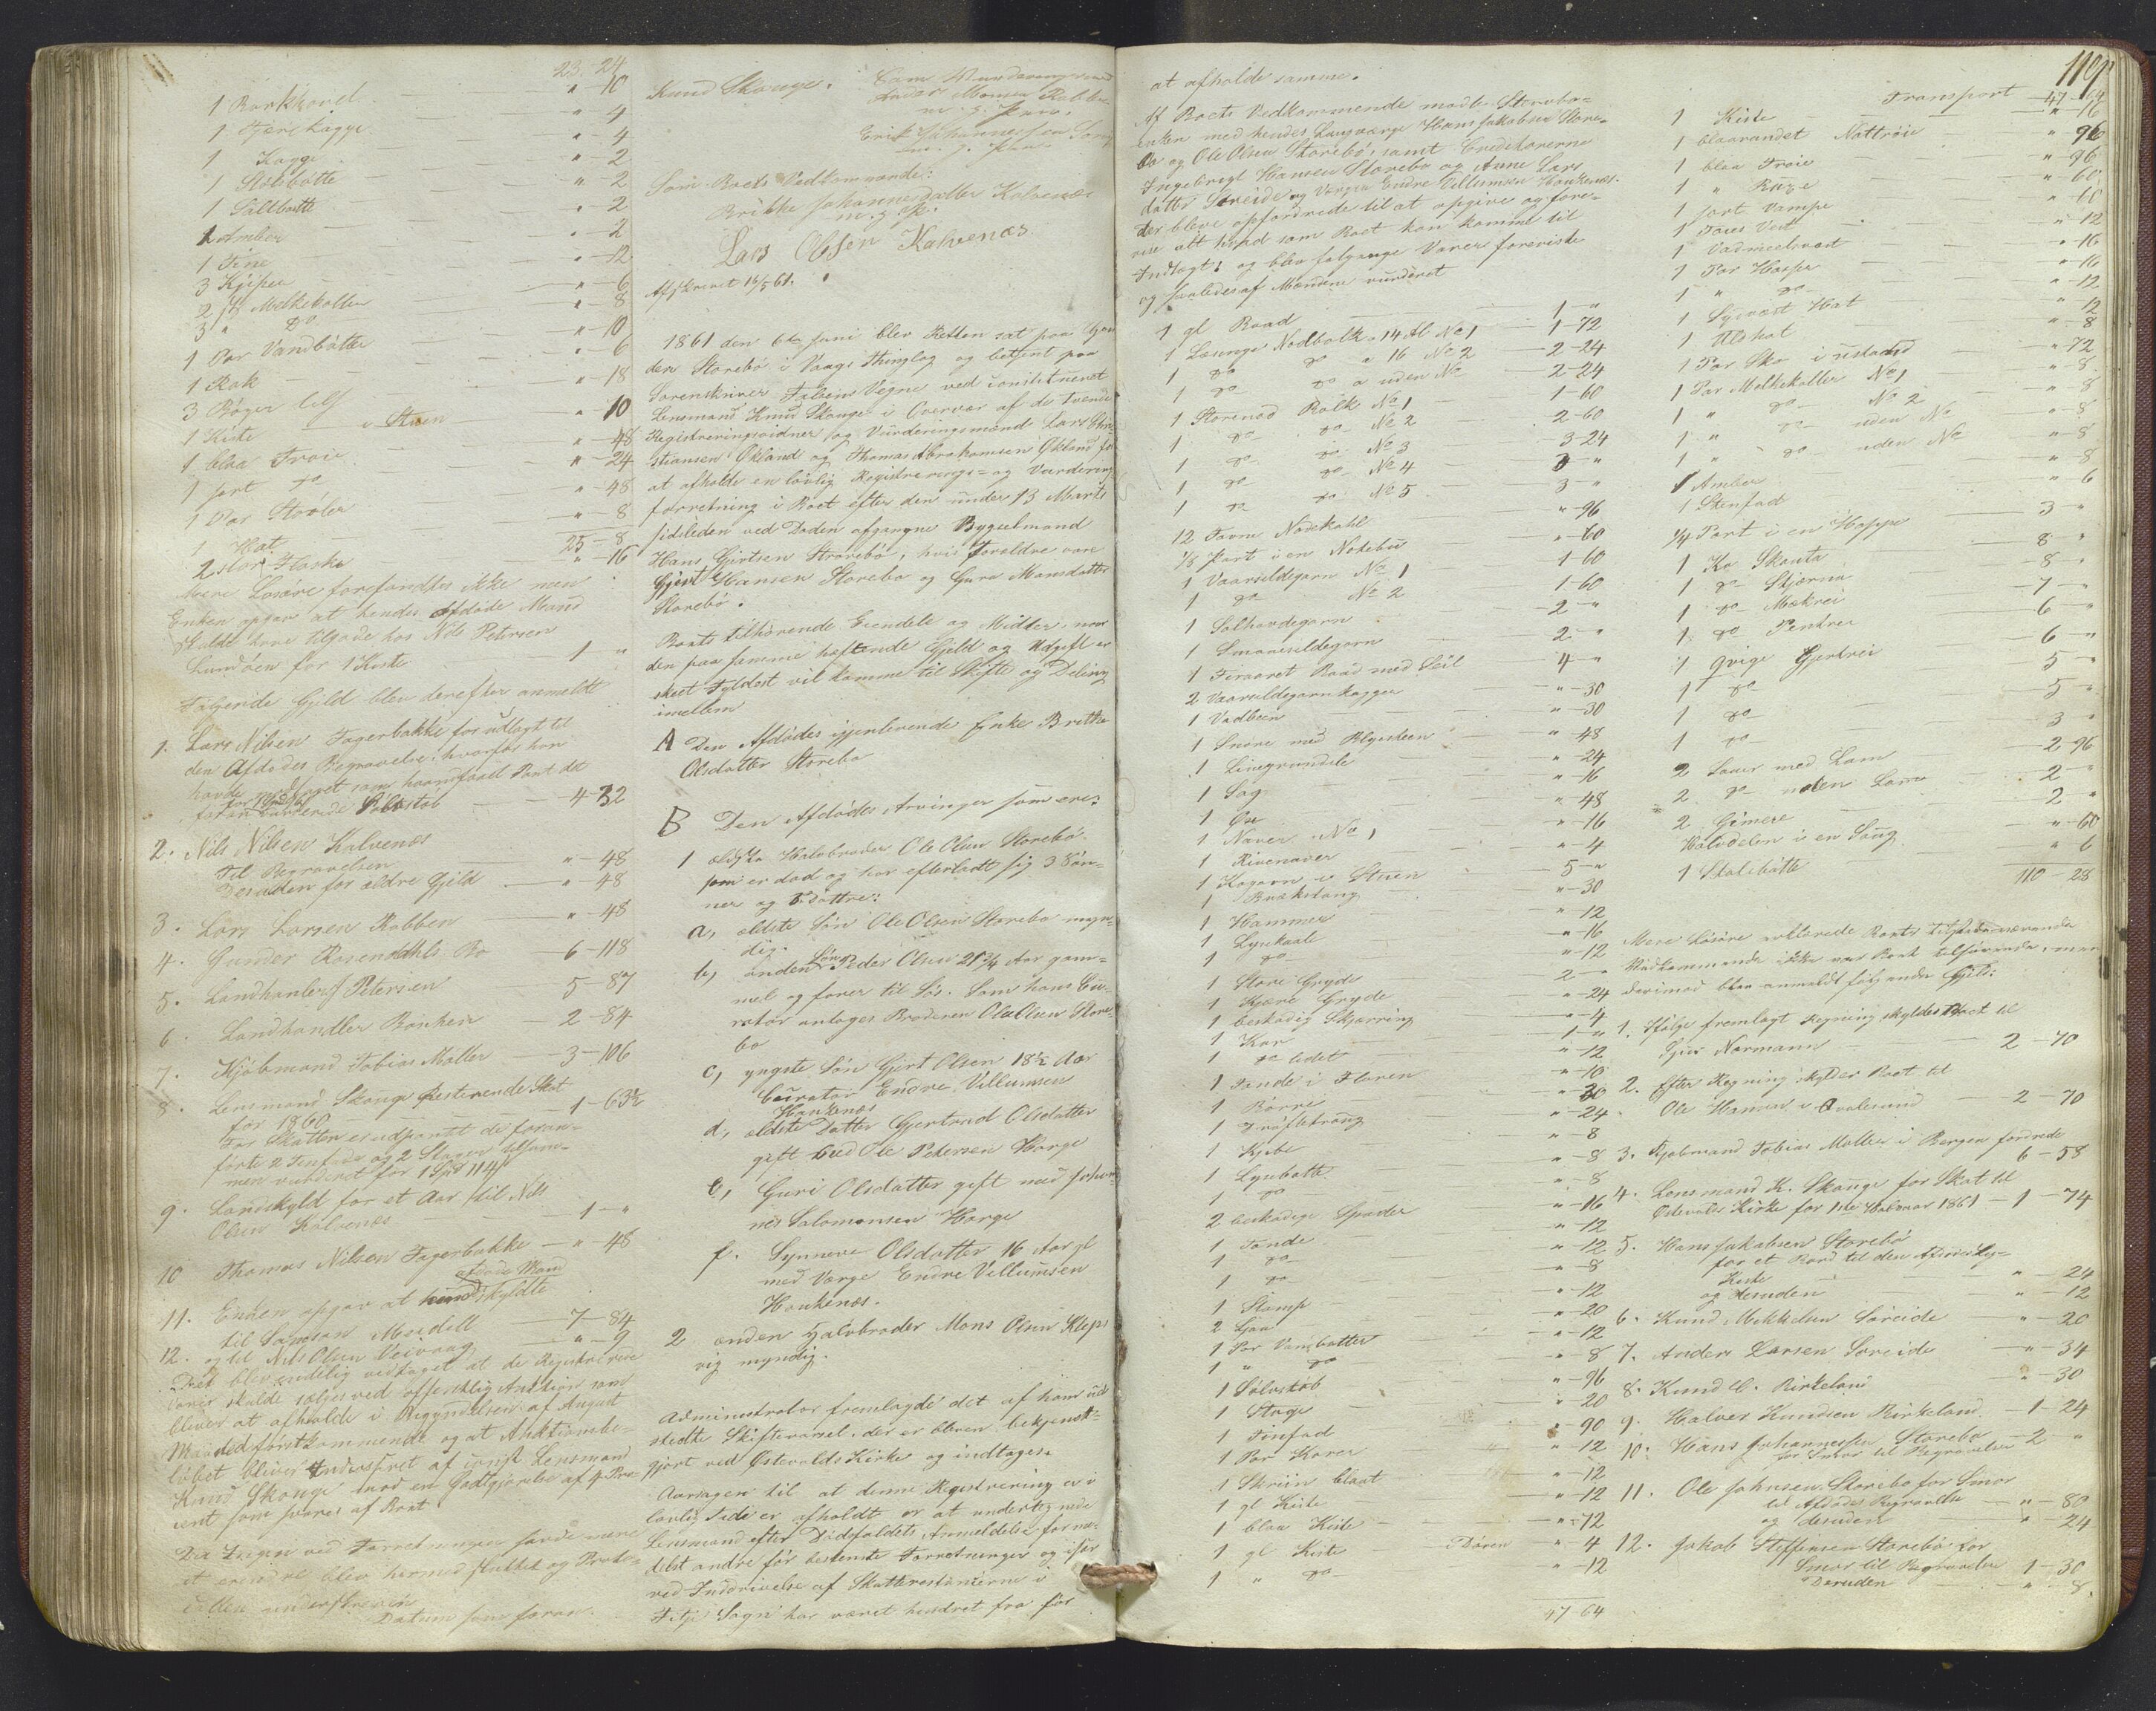 23-24
1 Barkhovel - "-10
1 Tjærekagge - "-4
1 Kagge - "-4
1 Stolsbøtte - "-2
1 Saltbøtte - "-2
1 Amber - "-2
1 Tine - "-2
3 Kjiper - "-12
2 pr Melkekoller - "-6
3 " do - "-8
1 Par Vandbøtter - "-10
1 Rok - "-6
3 Bøger - "-18
1 Kiste i Stuen - "-10
1 blaa Troie - "-48
1 sort do - "-24
1 Par Støvler - "-48
1 Hat - "-8
25-8
2 stor Flaske - "-16
Mere Løsøre forefandtes ikke men
Enken opgav at hendes Afdøde Mand
skulde have tilgode hos Nils Petersen
Lundøen for 1 Kiste - 1-"
Følgende Gjeld blev derefter anmeldt
1. Lars Nilsen Fagerbakke for udlagt til
den Afdødes Begravelse, hvorfor han
havde modtaget som haandfaaet Pant det
foran vurderede Sølvstøb - 4-32
2. Nils Nilsen Kalvenæs
Til Begravelsen - "-48
Desuden for ældre Gjeld - "-48
3. Lars Larsen Robben - "-48
4. Gunder Rosendahls Bo - 6-118
5. Landhandler J Petersen - 5-87
6. Landhandler Bønhen - 2-84
7. Kjøbmand Tobias Møller - 3-106
8. Lensmand Skouge Resterende Skat
for 1860 - 1-63½
For Skatten er udpantet de foran-
førte 2 Tinfade og 2 Stager tilsam-
men vurderet for 1 Spd 114 ß
9. Landskyld for et Aar til Nils
Olsen Kalvenæs - 1-"
10 Thomas Nilsen Fagerbakke - "-48
11. Enken opgav at hendes afdøde Mand skyldte
til Samson Møgedell - 7-84
12. og til Nils Olsen Veivaag - "-9
Det blev endelig vedtaget at de Registrerede
Varer skulde sælges ved offentlig Auktion som
bliver at afholde i Begyndelsen af August
Maaned førstkommende og at Auktionsbe-
løbet bliver Inddrevet af const Lensmand
Knud Skouge mod en Godtgjørelse af 4 Pro-
cent som svares af Boet
Da Ingen ved Forretningen havde mere
at erindre blev hermed sluttet og Proto-
collen underskreven
Datum som foran.
Knud Skouge. Som Vurderingsmænd
Anders Monsen Robben
m. p. Pen.
Erik Johannessen
m. p. Pen
Som Boets Vedkommende:
Brithe Johannesdatter Kalvenæs
m. p. P.
Lars Olsen Kalvenæs.
Afskrevet 16/5 61.
1861 den 6te Juni blev Retten sat paa Gaar
den Storebø i Vaags Thinglag og betjent paa
Sorenskriver Falsens Vegne ved constitueret
Lensmand Knud Skouge i Overvær af de tvende
Registreringsvidner og Vurderingsmænd Lars Chri-
stiansen Økland og Thomas Abrahamsen Økland for
at afholde en lovlig Registrerings- og Vurderings
forretning i Boet efter den under 13 Marts
sidstleden ved Døden afgangne Bygselmand
Hans Gjertsen Storebø, hvis Forældre vare
Gjert Hansen Storebø og Guro Monsdatter
Storebø.
Boets tilhørende Eiendele og Midler, naar
den paa samme hæftende Gjeld og Udgift er
skeet Fyldest vil komme til Skifte og Deling
imellem
A Den Afdødes igjenlevende Enke Brithe
Olsdatter Storebø
B Den Afdødes Arvinger som ere:
1 ældste Halvbroder Ole Olsen Storebø
som er død og har efterladt sig 3 Søn-
ner og 3 Døttre:
a, ældste Søn Ole Olsen Storebø myn-
dig.
b, anden Søn Peder Olsen 21¾ Aar gam-
mel og farer til Søs. Som hans Cu-
rator antages Broderen Ole Olsen Store-
bø
c, yngste Søn Gjert Olsen 18½ Aar
Curator Endre Villumsen
Hankenæs
d, ældste Datter Gjertrud Olsdatter
gift med Ole Petersen Horge
e, Guri Olsdatter gift med Johan-
nes Salomonsen Horge
f. Synneve Olsdatter 16 Aar gl
med Værge Endre Villumsen
Hankenæs.
2 anden Halvbroder Mons Olsen Kleps
vig myndig.
Administrator fremlagde det af ham ud
stedte Skiftevarsel, der er bleven bekjendt-
gjort ved Østevolds Kirke og indtages.
Aarsagen til at denne Registrering ei i
lovlig Tide er afholdt er at undertegnede
Lensmand efter Dødsfaldets Anmeldelse forme-
delst andre før bestemte Forretninger og især
ved Inddrivelse af Skatterestancerne i
Fitje Sogn har været hindret fra før
119
at afholde samme.
Af Boets Vedkommende mødte Storebø-
enken med hendes Laugværge Hans Jakobsen Store-
bø og Ole Olsen Storebø, samt Creditorerne
Ingebrigt Hansen Storebø og Anne Lars
datter Søreide og Værgen Endre Villumsen Hankenæs.
der bleve opfordrede til at opgive og fore-
vise alt hvad som Boet kan komme til
Indtægt: og blev følgende Varer foreviste
og saaledes af Mændene vurderet
1 gl Baad - 1-"
1 Lounge Nodbolk a 14 Al No 1 - 1-72
1 do do a 16 No 2 - 2-24
1 do do a uden No - 2-24
1 Storenod Bolk No 1 - 1-60
1 do do No 2 - 2-60
1 do do No 3 - 3-24
1 do do No 4 - 3-"
1 do do No 5 - 3-"
12 Favne Nodekabl - "-96
1/8 Part i en Notebu - "-60
1 Vaarsildegarn No 1 - 1-60
1 do No 2 - 1-60
1 Solhovdegarn - 2-"
1 Smaasildegarn - 2-"
1 Firaaret Baad med Seil - 4-"
2 Vaarsildegarnkagger - "-30
1 Vadbein - "-30
1 Snøre med Blysteen - "-48
1 Linegrundele - "-24
1 Sag - "-16
1 Øxe - "-48
1 Naver No 1 - "-16
1 Rivenaver - "-4
1 Kogovn i Stuen - 5-"
1 Brækstang - "-30
1 Hammer - "-12
1 Lysekaale - "-16
1 do - "-12
1 Store Gryde - 2-"
1 Kjære Gryde - "-24
1 beskadig Skjærring - "-4
1 Kar - 1-"
1 do lidet - "-12
1 Tønde i Floren - "-10
1 Børre - "-20
1 Drøftetraug - "-24
1 Kjibe - "-8
1 Lynbøtte - "-8
1 do - "-8
2 beskadige Spader - "-16
1 Tønde - "-12
1 do - "-12
1 do - "-8
1 Stamp - "-12
2 Ljaa - "-20
1 Par Vandbøtter - "-12
1 " do - "-8
1 Sølvstøb - "-96
1 Stage - "-20
1 Tinfad - "-90
1 Par Karer - "-12
1 Skriin blaat - "-12
1 gl Kiste - "-12
1 blaa Kiste - "-72
1 gl Kiste - "-4
1 " do - "-12
47-64
Transport 47-64
1 Kiste - "-16
1 blaarandet Nattrøie - "-96
1 blaa Trøie - "-96
1 " Buxe - "-60
1 sort Vampe - "-60
1 Toies Vest - "-12
1 Vadmeelsvest - "-16
1 Par Hoser - "-16
1 " do - "-12
1 Sydvest Hat - "-12
1 Uldhat - "-8
1 Par Sko i ustand - "-72
1 Par Melkekoller No 1 - "-8
1 " do No 2 - "-8
1 " do uden No - "-8
1 " do uden No - "-8
1 Amber - "-8
1 Stenfad - "-6
1/4 Part i en Hoppe - 3-"
1 Ko Skauta - 8-"
1 do Stjerna - 8-"
1 do Mækrei - 7-"
1 do Penkrei - 6-"
1 Qvige Gjertrei - 6-"
1 do - 5-"
1 do - 5-"
1 do - 3-"
2 Souer med Lam - 2-96
2 do uden Lam - 2-"
2 Gimere - 2-"
Halvdelen i en Saug - "-60
1 Stolsbøtte - "-6
110-28
Mere Løsøre erklærede Boets tilstedeværende
Vedkommende ikke var Boet tilhørende, men
Derimod blev anmeldt følgende Gjeld:
1. Ifølge fremlagt Regning skyldes Boet til
Sjur Normann - 2-70
2. Efter Regning skylder Boet til
Ole Hansen i Qvalesund - 2-70
3. Kjøbmand Tobias Møller i Bergen fordrede
6-58
4. Lensmand K. Skouge for Skat til
Østevolds Kirke for 1ste Halvaar 1861 - 1-74
5. Hans Jakobsen Storebø
for et Bord til den Afdødes Lig-
Kiste - "-24
og desuden - "-12
6. Knud Mikkelsen Søreide - "-20
7. Anders Larsen Søreide - "-34
8. Knud Birkeland - "-30
9. Halver Knudsen Birkeland - 1-24
10. Hans Johannessen Storebø
for Smør til Begravelse 2-"
11. Ole Johnsen Storebø for Smør
til Afdødes Begravelse - "-80
og desuden - "-24
12. Jakob Steffensen Storebø for
Smør til Begravelse 1-30
Desuden - "-8.